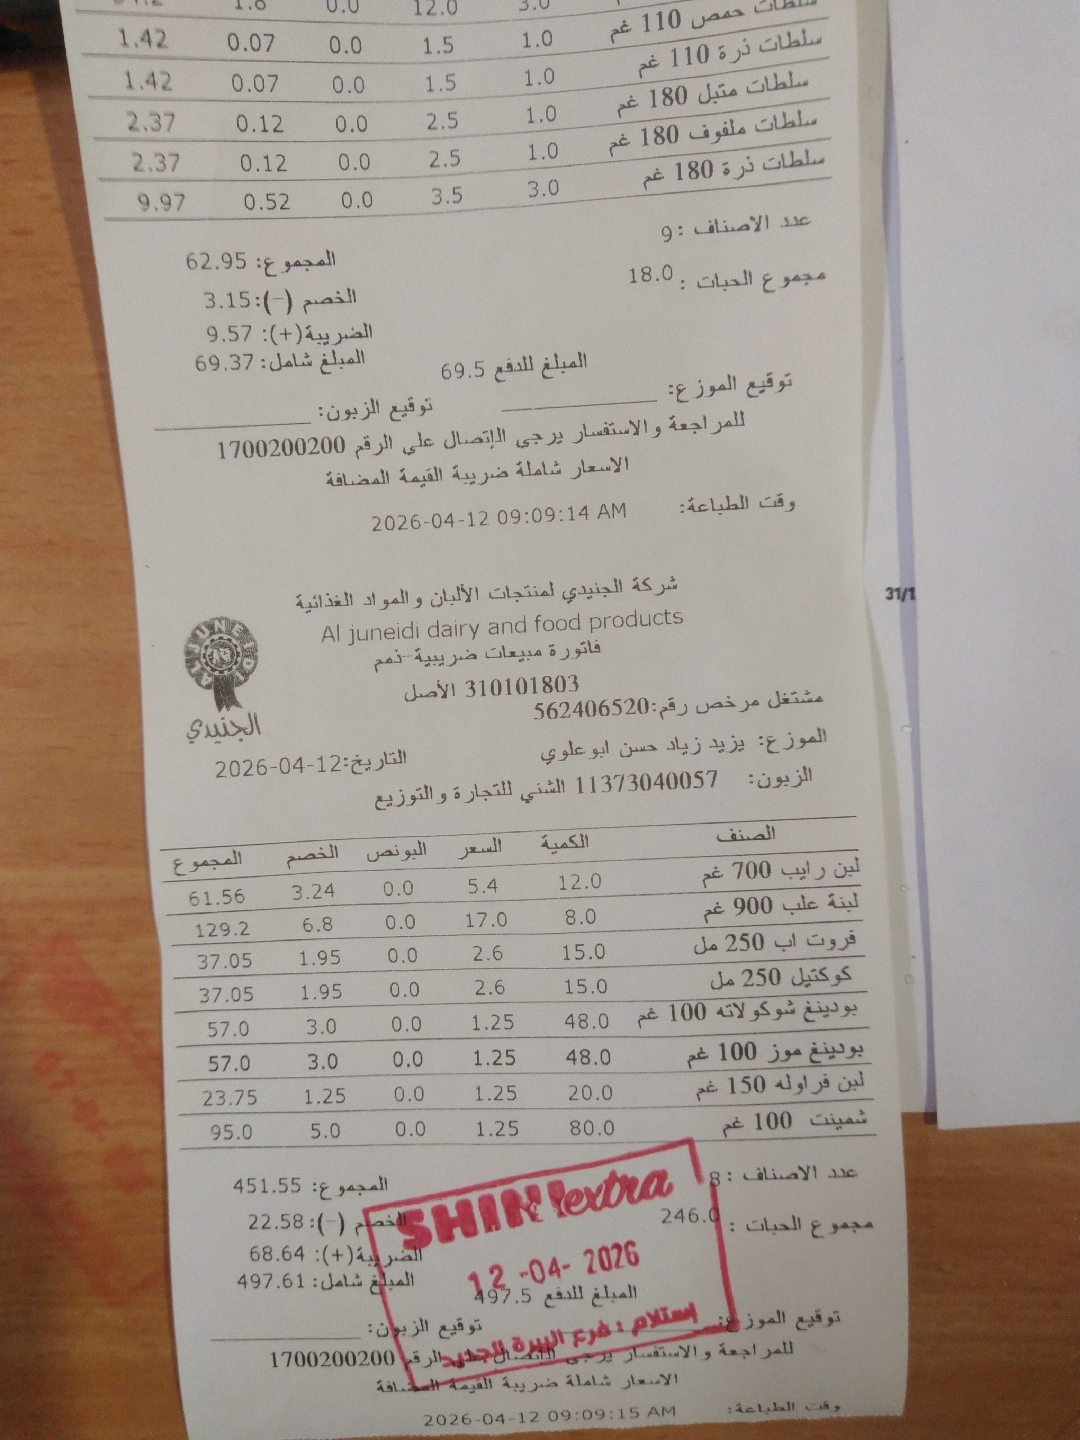 1.8 0.0 12.0 3.0
سلطات حمص 110 غم 1.0 1.5 0.0 0.07 1.42
سلطات ذرة 110 غم 1.0 1.5 0.0 0.07 1.42
سلطات متبل 180 غم 1.0 2.5 0.0 0.12 2.37
سلطات ملفوف 180 غم 1.0 2.5 0.0 0.12 2.37
سلطات ذرة 180 غم 3.0 3.5 0.0 0.52 9.97
عدد الاصناف : 9
المجموع: 62.95
مجموع الحبات : 18.0
الخصم (-): 3.15
الضريبة(+): 9.57
المبلغ شامل: 69.37
المبلغ للدفع 69.5
توقيع الموزع: ____________
توقيع الزبون: ____________
للمراجعة والاستفسار يرجى الإتصال على الرقم 1700200200
الاسعار شاملة ضريبة القيمة المضافة
وقت الطباعة: 2026-04-12 09:09:14 AM
31/1
شركة الجنيدي لمنتجات الألبان والمواد الغذائية
Al juneidi dairy and food products
AL JUNEIDI
الجنيدي
فاتورة مبيعات ضريبية-ذمم
310101803 الأصل
مشتغل مرخص رقم:562406520
الموزع: يزيد زياد حسن ابوعلوي
التاريخ:2026-04-12
الزبون: 11373040057 الشني للتجارة والتوزيع
الصنف الكمية السعر البونص الخصم المجموع
لبن رايب 700 غم 12.0 5.4 0.0 3.24 61.56
لبنة علب 900 غم 8.0 17.0 0.0 6.8 129.2
فروت اب 250 مل 15.0 2.6 0.0 1.95 37.05
كوكتيل 250 مل 15.0 2.6 0.0 1.95 37.05
بودينغ شوكولاته 100 غم 48.0 1.25 0.0 3.0 57.0
بودينغ موز 100 غم 48.0 1.25 0.0 3.0 57.0
لبن فراوله 150 غم 20.0 1.25 0.0 1.25 23.75
شمينت 100 غم 80.0 1.25 0.0 5.0 95.0
عدد الاصناف : 8
المجموع: 451.55
مجموع الحبات : 246.0
الخصم (-): 22.58
الضريبة(+): 68.64
المبلغ شامل: 497.61
المبلغ للدفع 497.5
SHINI extra
12-04-2026
استلام : فرع البيرة الجديد
توقيع الموزع:
توقيع الزبون: ____________
للمراجعة والاستفسار يرجى الإتصال على الرقم 1700200200
الاسعار شاملة ضريبة القيمة المضافة
وقت الطباعة: 2026-04-12 09:09:15 AM